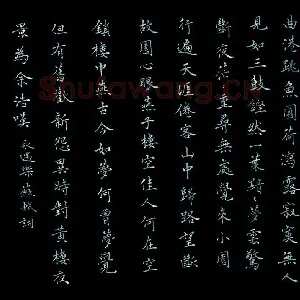 曲港跳魚圓荷瀉露寂寞無人
見如三鼓鏗然一葉黯黯夢雲驚
斷夜茫茫重尋無處覺來小園
行遍天涯倦客山中歸路望斷
故園心眼燕子樓空佳人何在空
鎖樓中燕古今如夢何曾夢覺
但有舊歡新怨異時對黃樓夜
景為余浩嘆
永遇樂蘇軾詞
Shufawang.cn